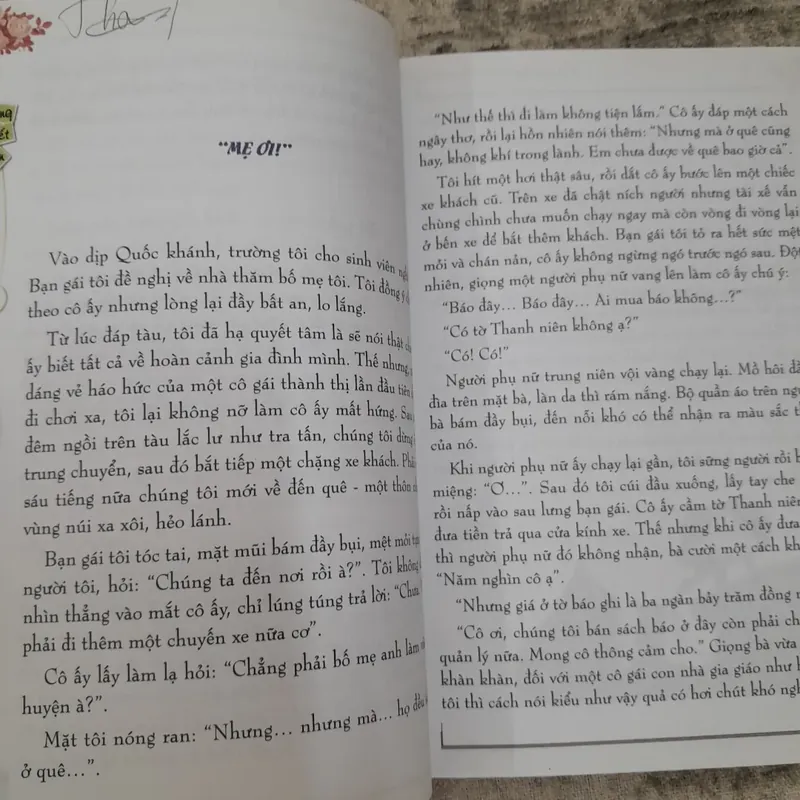 "MẸ ƠI!"
Vào dịp Quốc khánh, trường tôi cho sinh viên
Bạn gái tôi đề nghị về nhà thăm bố mẹ tôi. Tôi đồng ý
theo cô ấy nhưng lòng lại đầy bất an, lo lắng.
Từ lúc đáp tàu, tôi đã hạ quyết tâm là sẽ nói thật
ấy biết tất cả về hoàn cảnh gia đình mình. Thế nhưng,
dáng vẻ háo hức của một cô gái thành thị lần đầu tiên
đi chơi xa, tôi lại không nỡ làm cô ấy mất hứng. Sau
đêm ngồi trên tàu lắc lư như tra tấn, chúng tôi dừng
trung chuyển, sau đó bắt tiếp một chặng xe khách. Phải
sáu tiếng nữa chúng tôi mới về đến quê - một thôn
vùng núi xa xôi, hẻo lánh.
Bạn gái tôi tóc tai, mặt mũi bám đầy bụi, mệt mỏi
người tôi, hỏi: "Chúng ta đến nơi rồi à?". Tôi không
nhìn thẳng vào mắt cô ấy, chỉ lúng túng trả lời: "Chưa
phải đi thêm một chuyến xe nữa cơ".
Cô ấy lấy làm lạ hỏi: "Chẳng phải bố mẹ anh làm
huyện à?".
Mặt tôi nóng ran: "Nhưng... nhưng mà... họ đều
ở quê...".
"Như thế thì đi làm không tiện lắm." Cô ấy đáp một cách
ngây thơ, rồi lại hồn nhiên nói thêm: "Nhưng mà ở quê cũng
hay, không khí trong lành. Em chưa được về quê bao giờ cả".
Tôi hít một hơi thật sâu, rồi dắt cô ấy bước lên một chiếc
xe khách cũ. Trên xe đã chật ních người nhưng tài xế vẫn
chùng chình chưa muốn chạy ngay mà còn vòng đi vòng lại
ở bến xe để bắt thêm khách. Bạn gái tôi tỏ ra hết sức mệt
mỏi và chán nản, cô ấy không ngừng ngó trước ngó sau. Đột
nhiên, giọng một người phụ nữ vang lên làm cô ấy chú ý:
"Báo đây... Báo đây... Ai mua báo không...?"
"Có tờ Thanh niên không ạ?"
"Có! Có!"
Người phụ nữ trung niên vội vàng chạy lại. Mồ hôi
đìa trên mặt bà, làn da thì rám nắng. Bộ quần áo trên
bà bám đầy bụi, đến nỗi khó có thể nhận ra màu sắc
của nó.
Khi người phụ nữ ấy chạy lại gần, tôi sững người rồi
miệng: "Ơ...". Sau đó tôi cúi đầu xuống, lấy tay che
rồi nấp vào sau lưng bạn gái. Cô ấy cầm tờ Thanh niên
đưa tiền trả qua cửa kính xe. Thế nhưng khi cô ấy đưa
thì người phụ nữ đó không nhận, bà cười một cách
"Năm nghìn cô ạ".
"Nhưng giá ở tờ báo ghi là ba ngàn bảy trăm đồng
"Cô ơi, chúng tôi bán sách báo ở đây còn phải
quản lý nữa. Mong cô thông cảm cho." Giọng bà vừa
khàn khàn, đối với một cô gái con nhà gia giáo như
tôi thì cách nói kiểu như vậy quả có hơi chút khó